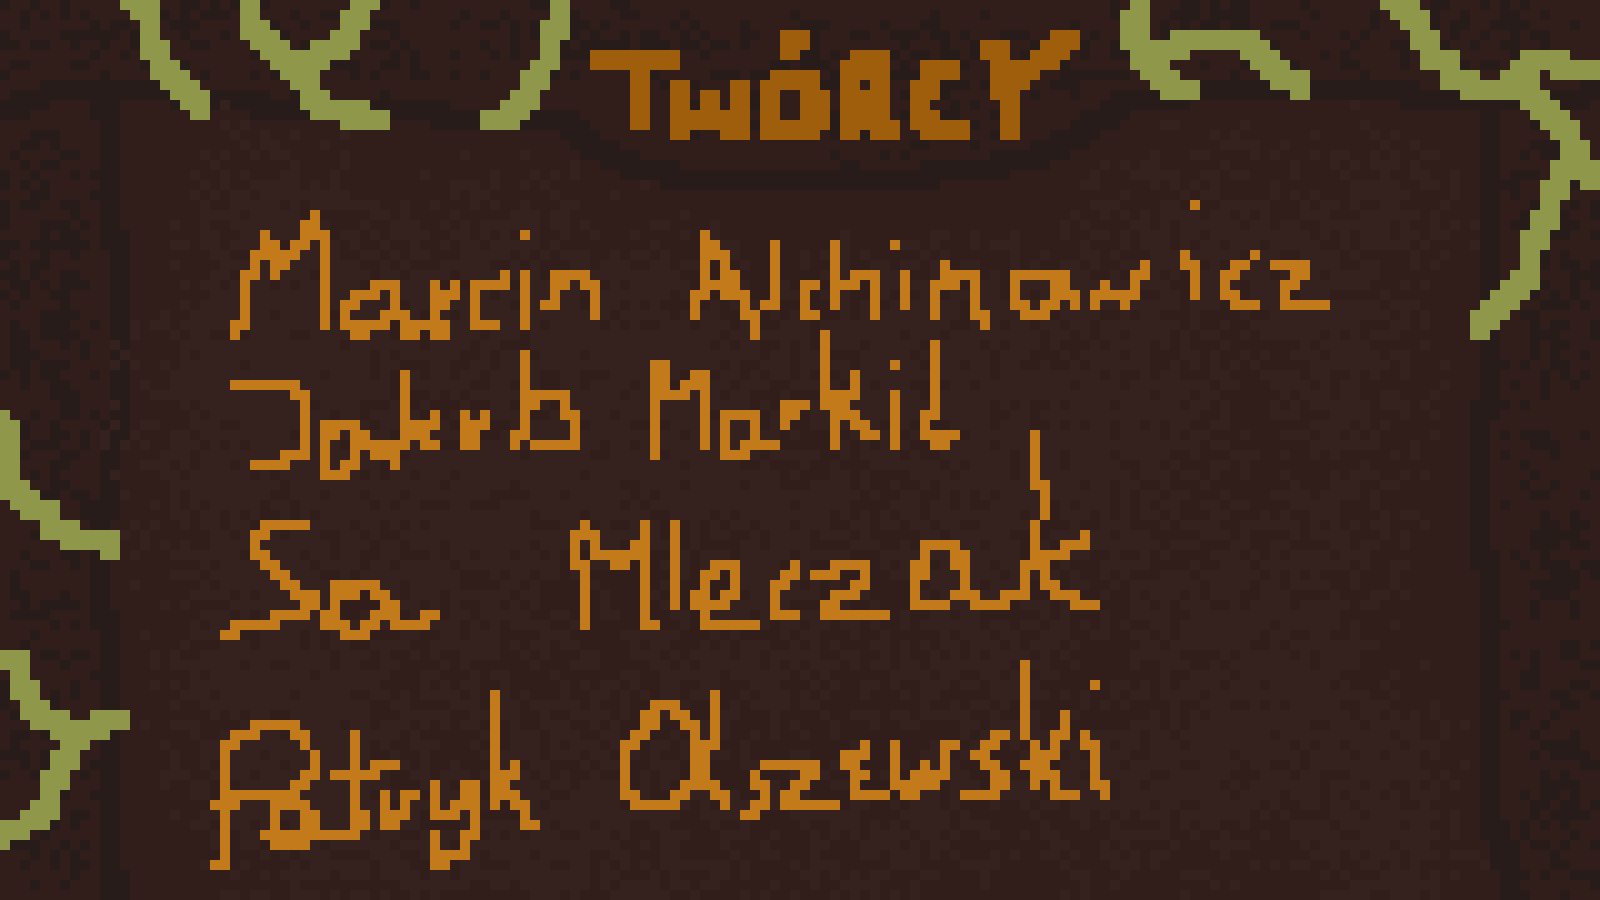 TWÓRCY
Marcin Alchimowicz
Jakub Markil
Sa Mleczak
Patryk Olszewski